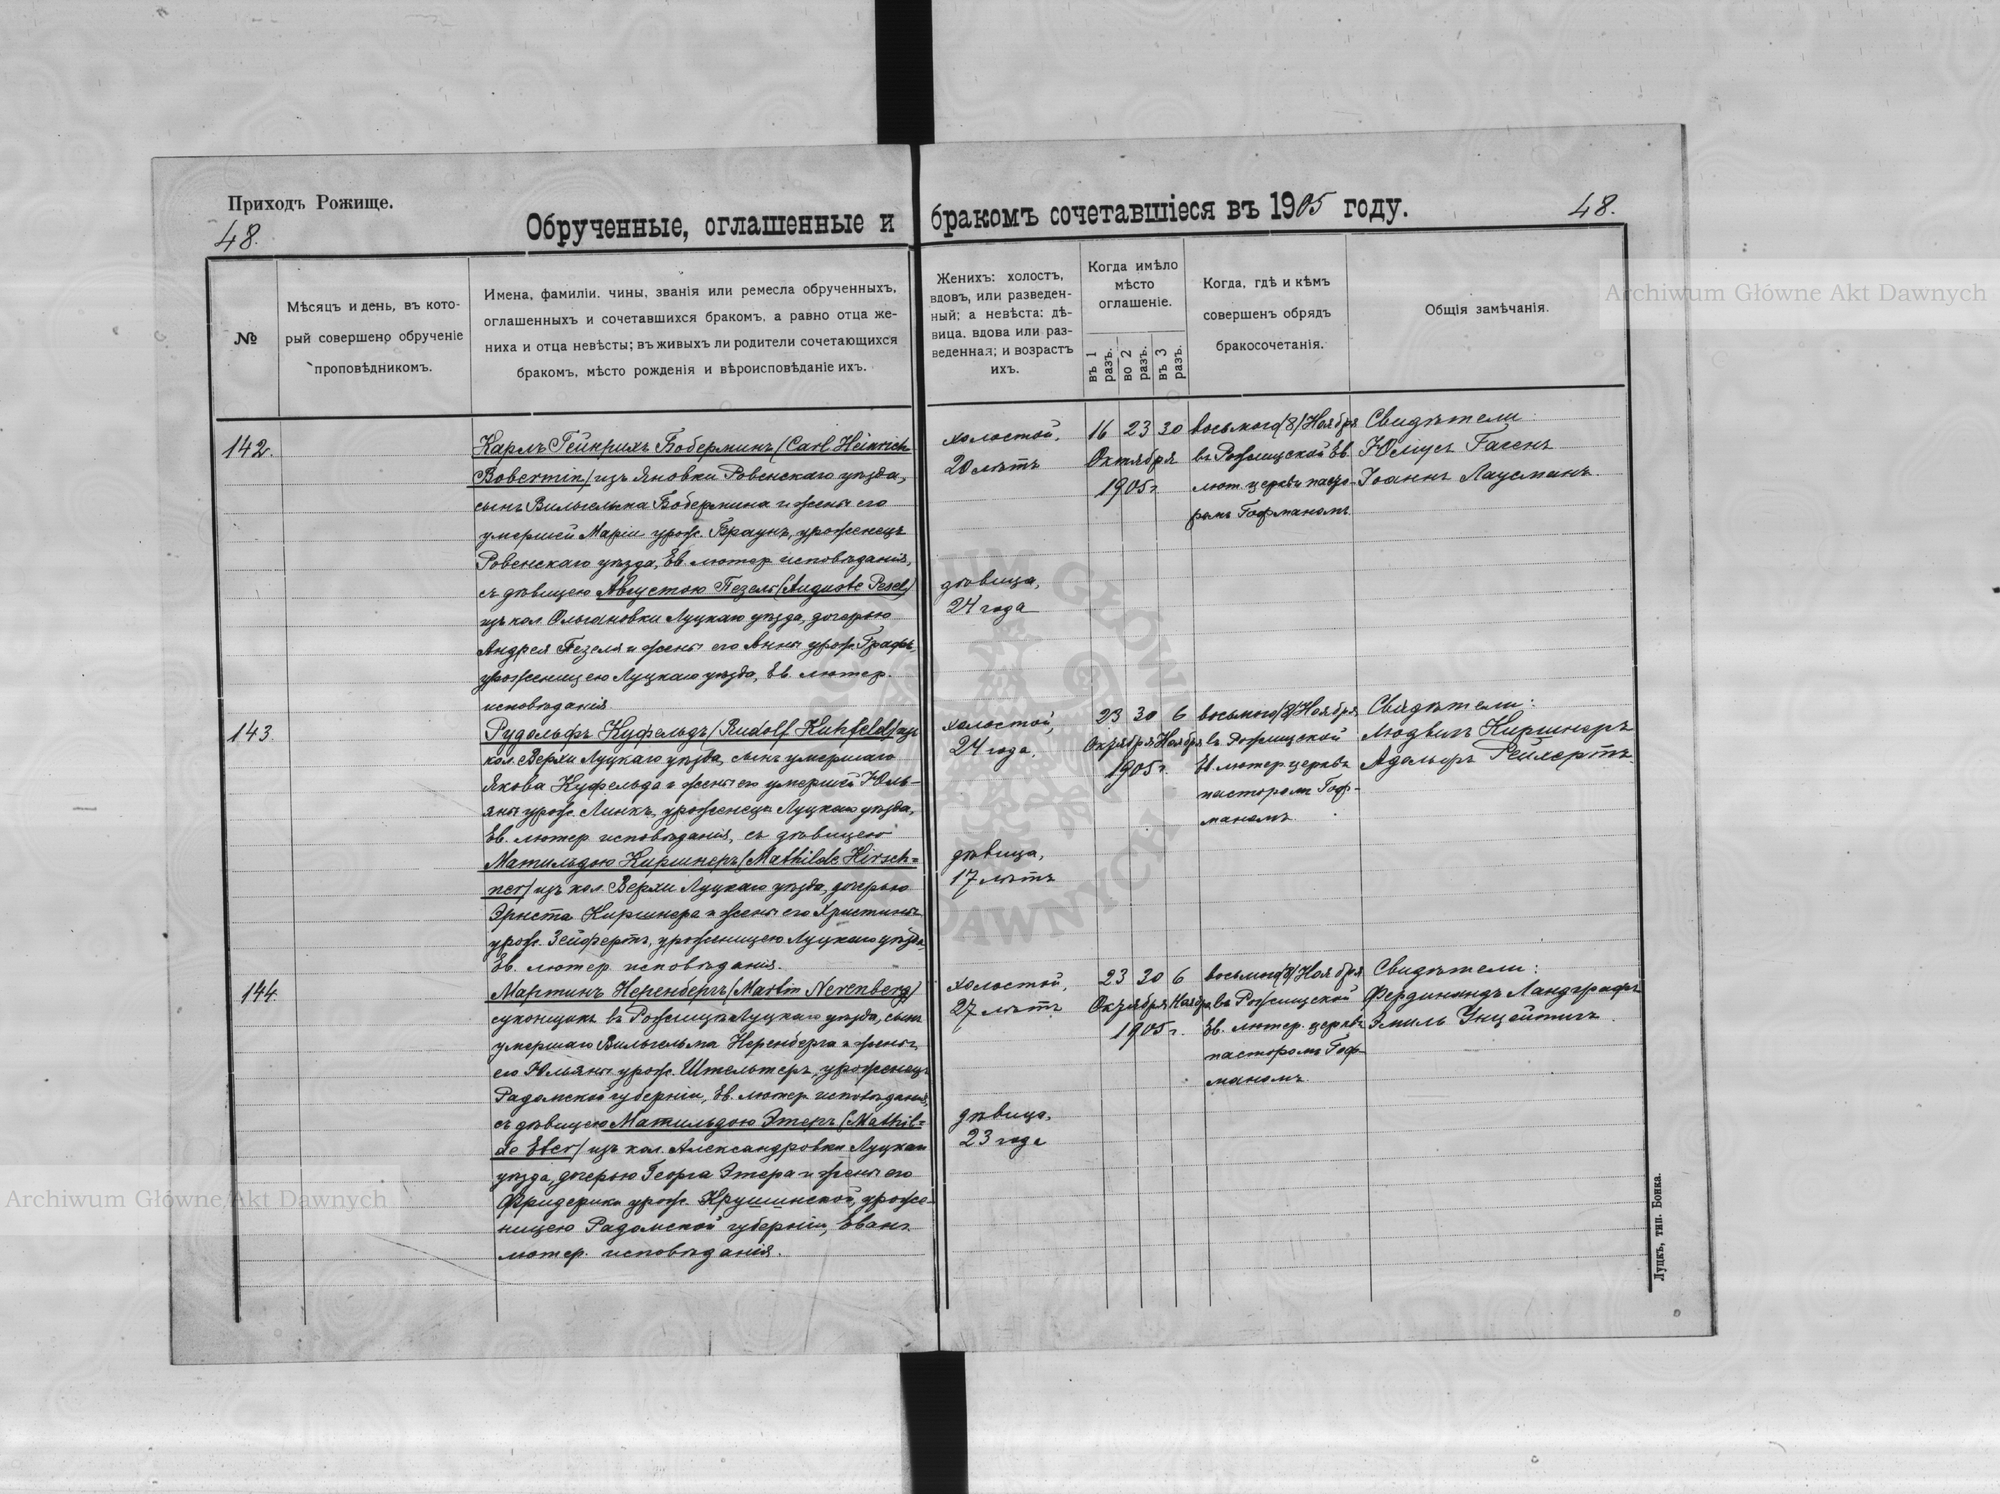 Приходъ Рожище.
48.
Обрученные, оглашенные и бракомъ сочетавшіеся въ 1905 году.
48.
№
Мѣсяцъ и день, въ кото-
рый совершено обрученіе
проповѣдникомъ.
Имена, фамиліи. чины, званія или ремесла обрученныхъ,
оглашенныхъ и сочетавшихся бракомъ, а равно отца же-
ниха и отца невѣсты; въ живыхъ ли родители сочетающихся
бракомъ, мѣсто рожденія и вѣроисповѣданіе ихъ.
Женихъ: холостъ,
вдовъ, или разведен-
ный; а невѣста: дѣ-
вица. вдова или раз-
веденная; и возрастъ
ихъ.
Когда имѣло
мѣсто
оглашеніе.
въ 1 разъ.
во 2 разъ.
въ 3 разъ.
Когда, гдѣ и кѣмъ
совершенъ обрядъ
бракосочетанія.
Общія замѣчанія.
142.
Карлъ Гейнрихъ Боберминъ (Carl Heinrich
Bobermin) изъ Яновки Ровенскаго уѣзда,
сынъ Вильгельма Бобермина и жены его
умершей Маріи урож. Браунъ, уроженецъ
Ровенскаго уѣзда, Ев. лютер. исповѣданія,
съ дѣвицею Августою Пезель (Auguste Pesel)
изъ кол. Ольгановки Луцкаго уѣзда, дочерью
Андрея Пезеля и жены его Анны урож. Графъ,
уроженицею Луцкаго уѣзда, Ев. лютер.
исповѣданія
холостой,
20 лѣтъ
дѣвица,
24 года
16 23 30
Октября
1905 г
восьмого (8) Ноября
въ Рожищской Ев.
лют. церкви пасто-
ромъ Гофманомъ.
Свидѣтели:
Юліусъ Гагенъ
Іоаннъ Лаусманъ.
143.
Рудольфъ Куфельдъ (Rudolf Kuhfeld) изъ
кол. Верхи Луцкаго уѣзда, сынъ умершаго
Якова Куфельда и жены его умершей Юль-
яны урож. Линкъ, уроженецъ Луцкаго уѣзда,
Ев. лютер. исповѣданія, съ дѣвицею
Матильдою Киршнеръ (Mathilde Hirsch-
ner) изъ кол. Верхи Луцкаго уѣзда, дочерью
Эрнста Киршнера и жены его Христины
урож. Зейфертъ, уроженицею Луцкаго уѣзда
Ев. лютер. исповѣданія.
холостой,
24 года.
дѣвица,
17 лѣтъ
23 30 6
Октября Ноября
1905 г.
восьмого (8) Ноября
въ Рожищской
Ев. лютер. церкви
пасторомъ Гоф-
маномъ.
Свидѣтели:
Людвигъ Киршнеръ
Адольфъ Рейхертъ
144.
Мартинъ Неренбергъ (Martin Nerenberg)
суконщикъ въ Рожищѣ Луцкаго уѣзда, сынъ
умершаго Вильгельма Неренберга и жены
его Юльяны урож. Штельтеръ, уроженецъ
Радомской губерніи, Ев. лютер. исповѣданія,
съ дѣвицею Матильдою Этеръ (Mathil-
de Eter) изъ кол. Александровки Луцкаго
уѣзда, дочерью Георга Этера и жены его
Фридерики урож. Крушинской, уроже-
ницею Радомской губерніи, Еванг.
лютер. исповѣданія.
холостой,
27 лѣтъ
дѣвица,
23 года
23 30 6
Октября Ноября
1905 г.
восьмого (8) Ноября
въ Рожищской
Ев. лютер. церкви
пасторомъ Гоф-
маномъ.
Свидѣтели:
Фердинандъ Ландграфъ
Эмиль
Луцкъ, тип. Бонка.
Archiwum Główne Akt Dawnych
Archiwum Główne Akt Dawnych